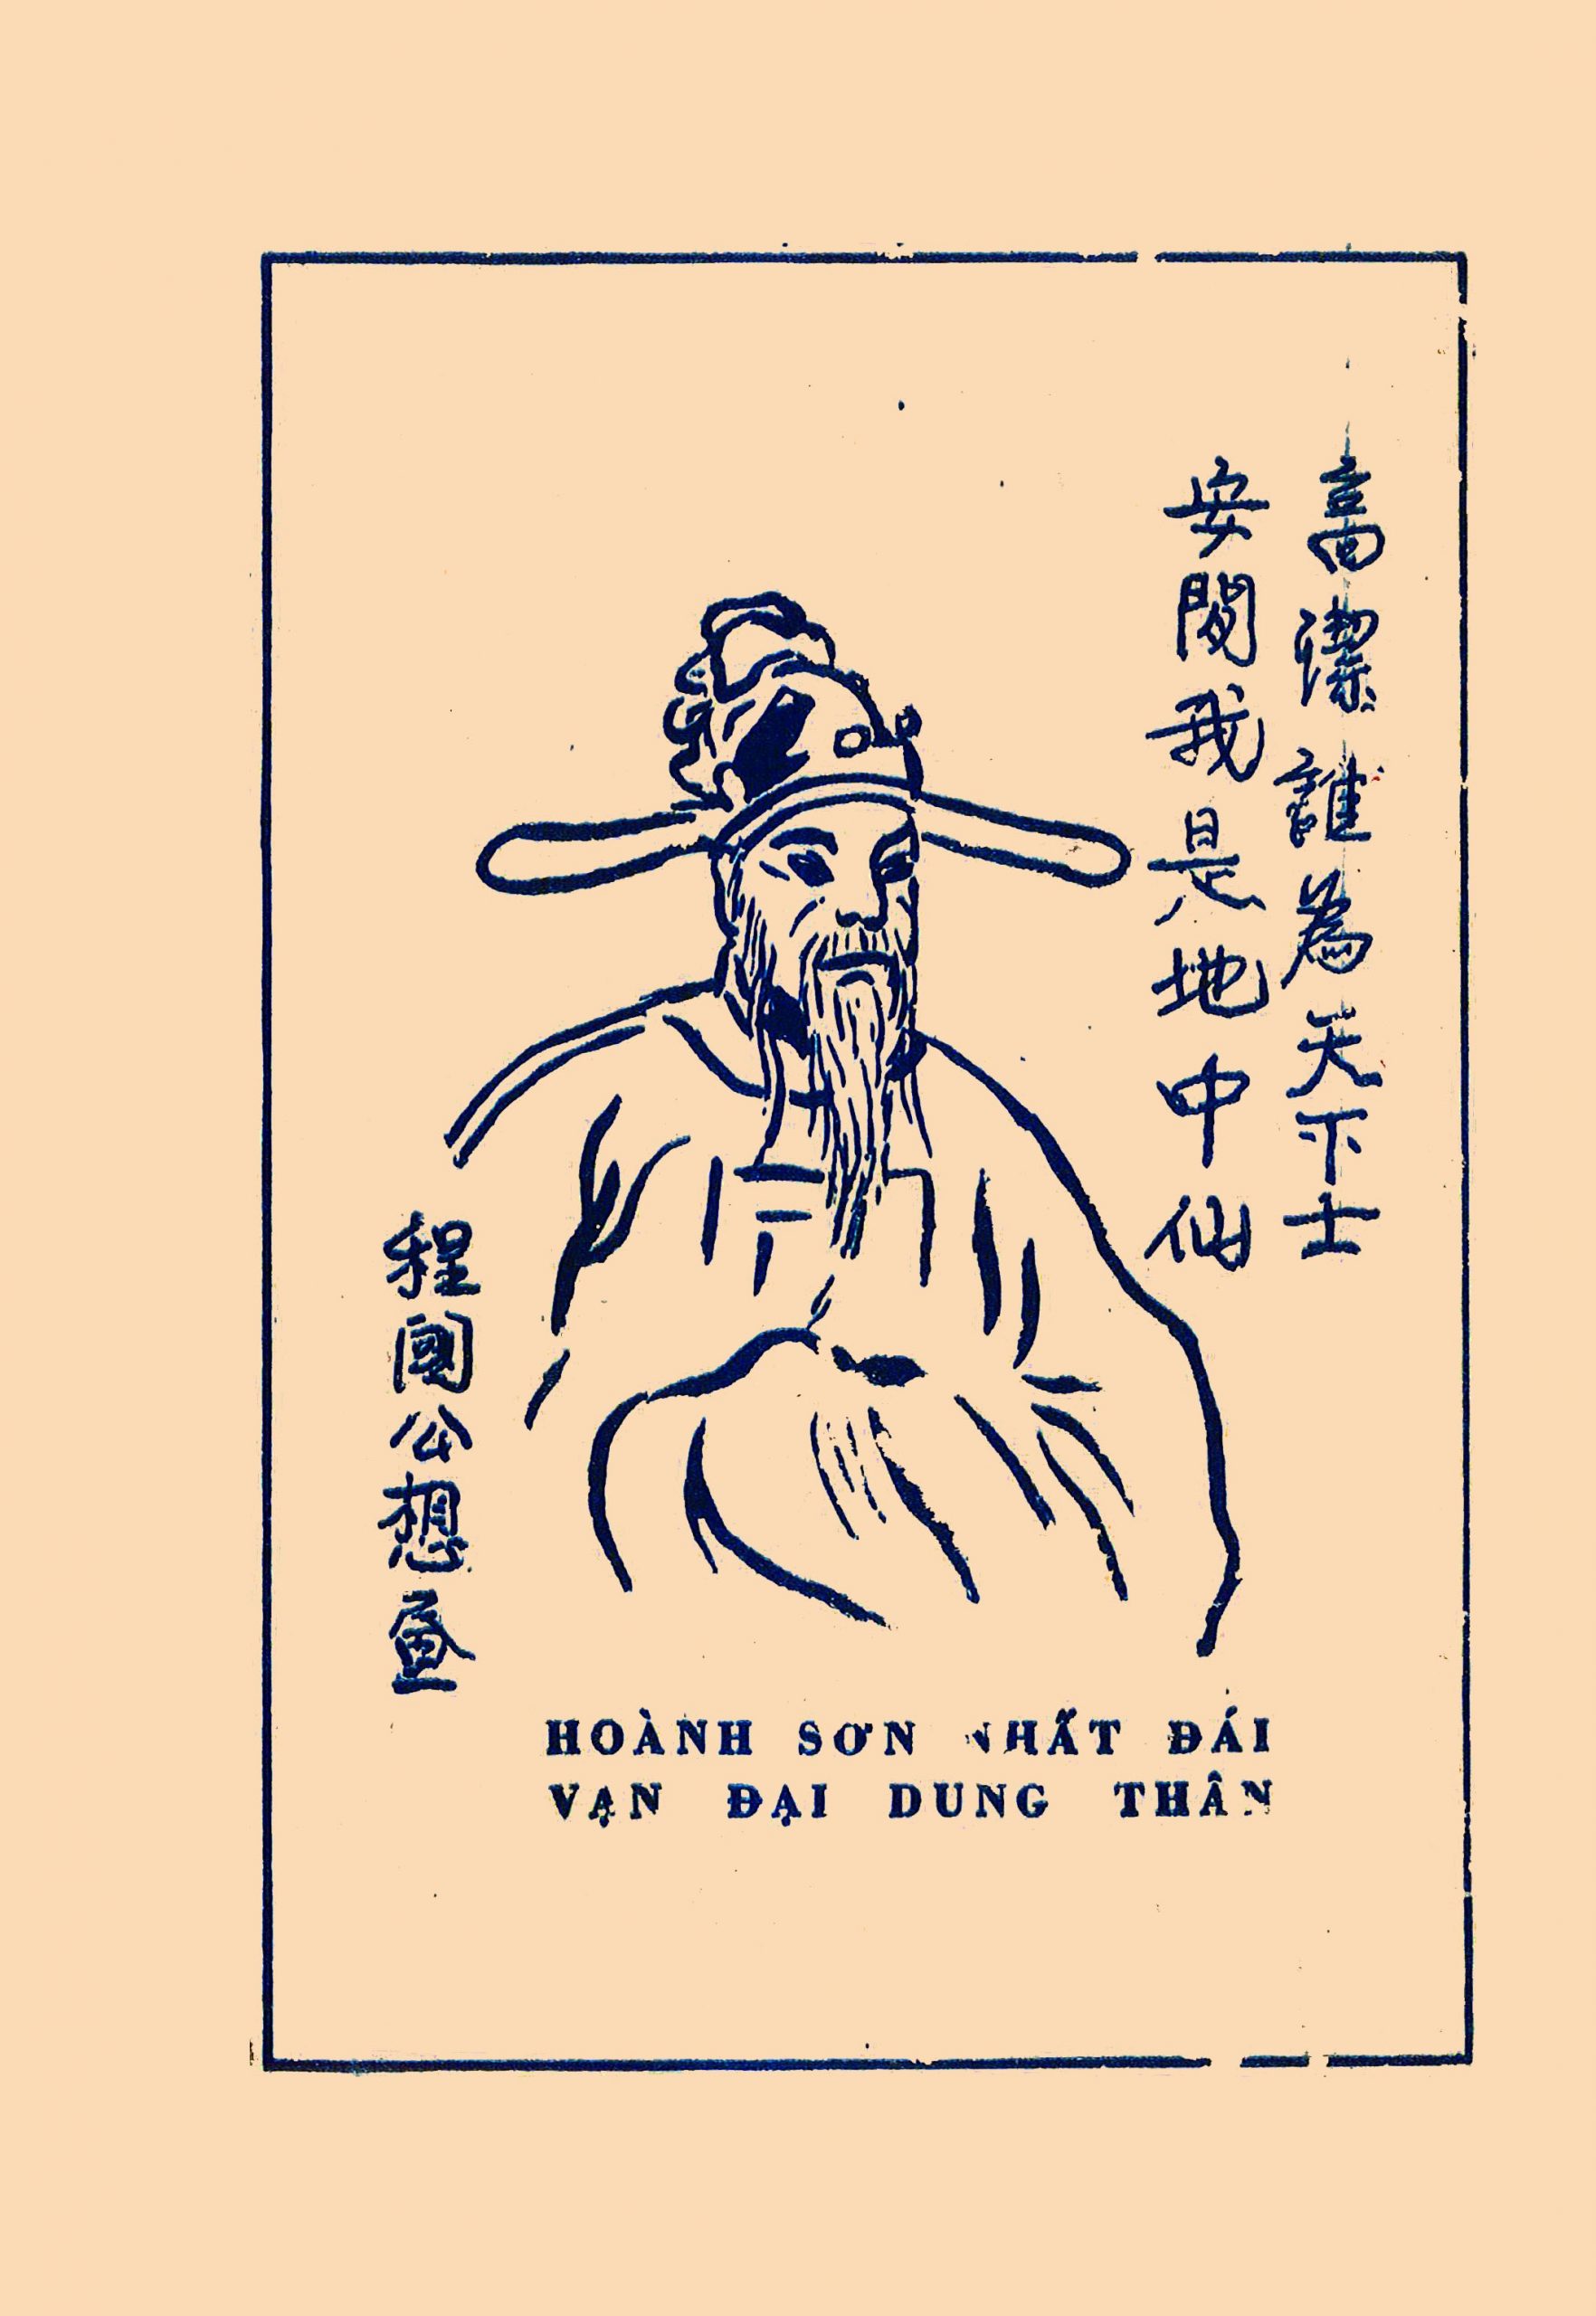 高潔誰為天下士
安閒我是地中仙
程國公想像
HOÀNH SƠN NHẤT ĐÁI
VẠN ĐẠI DUNG THÂN